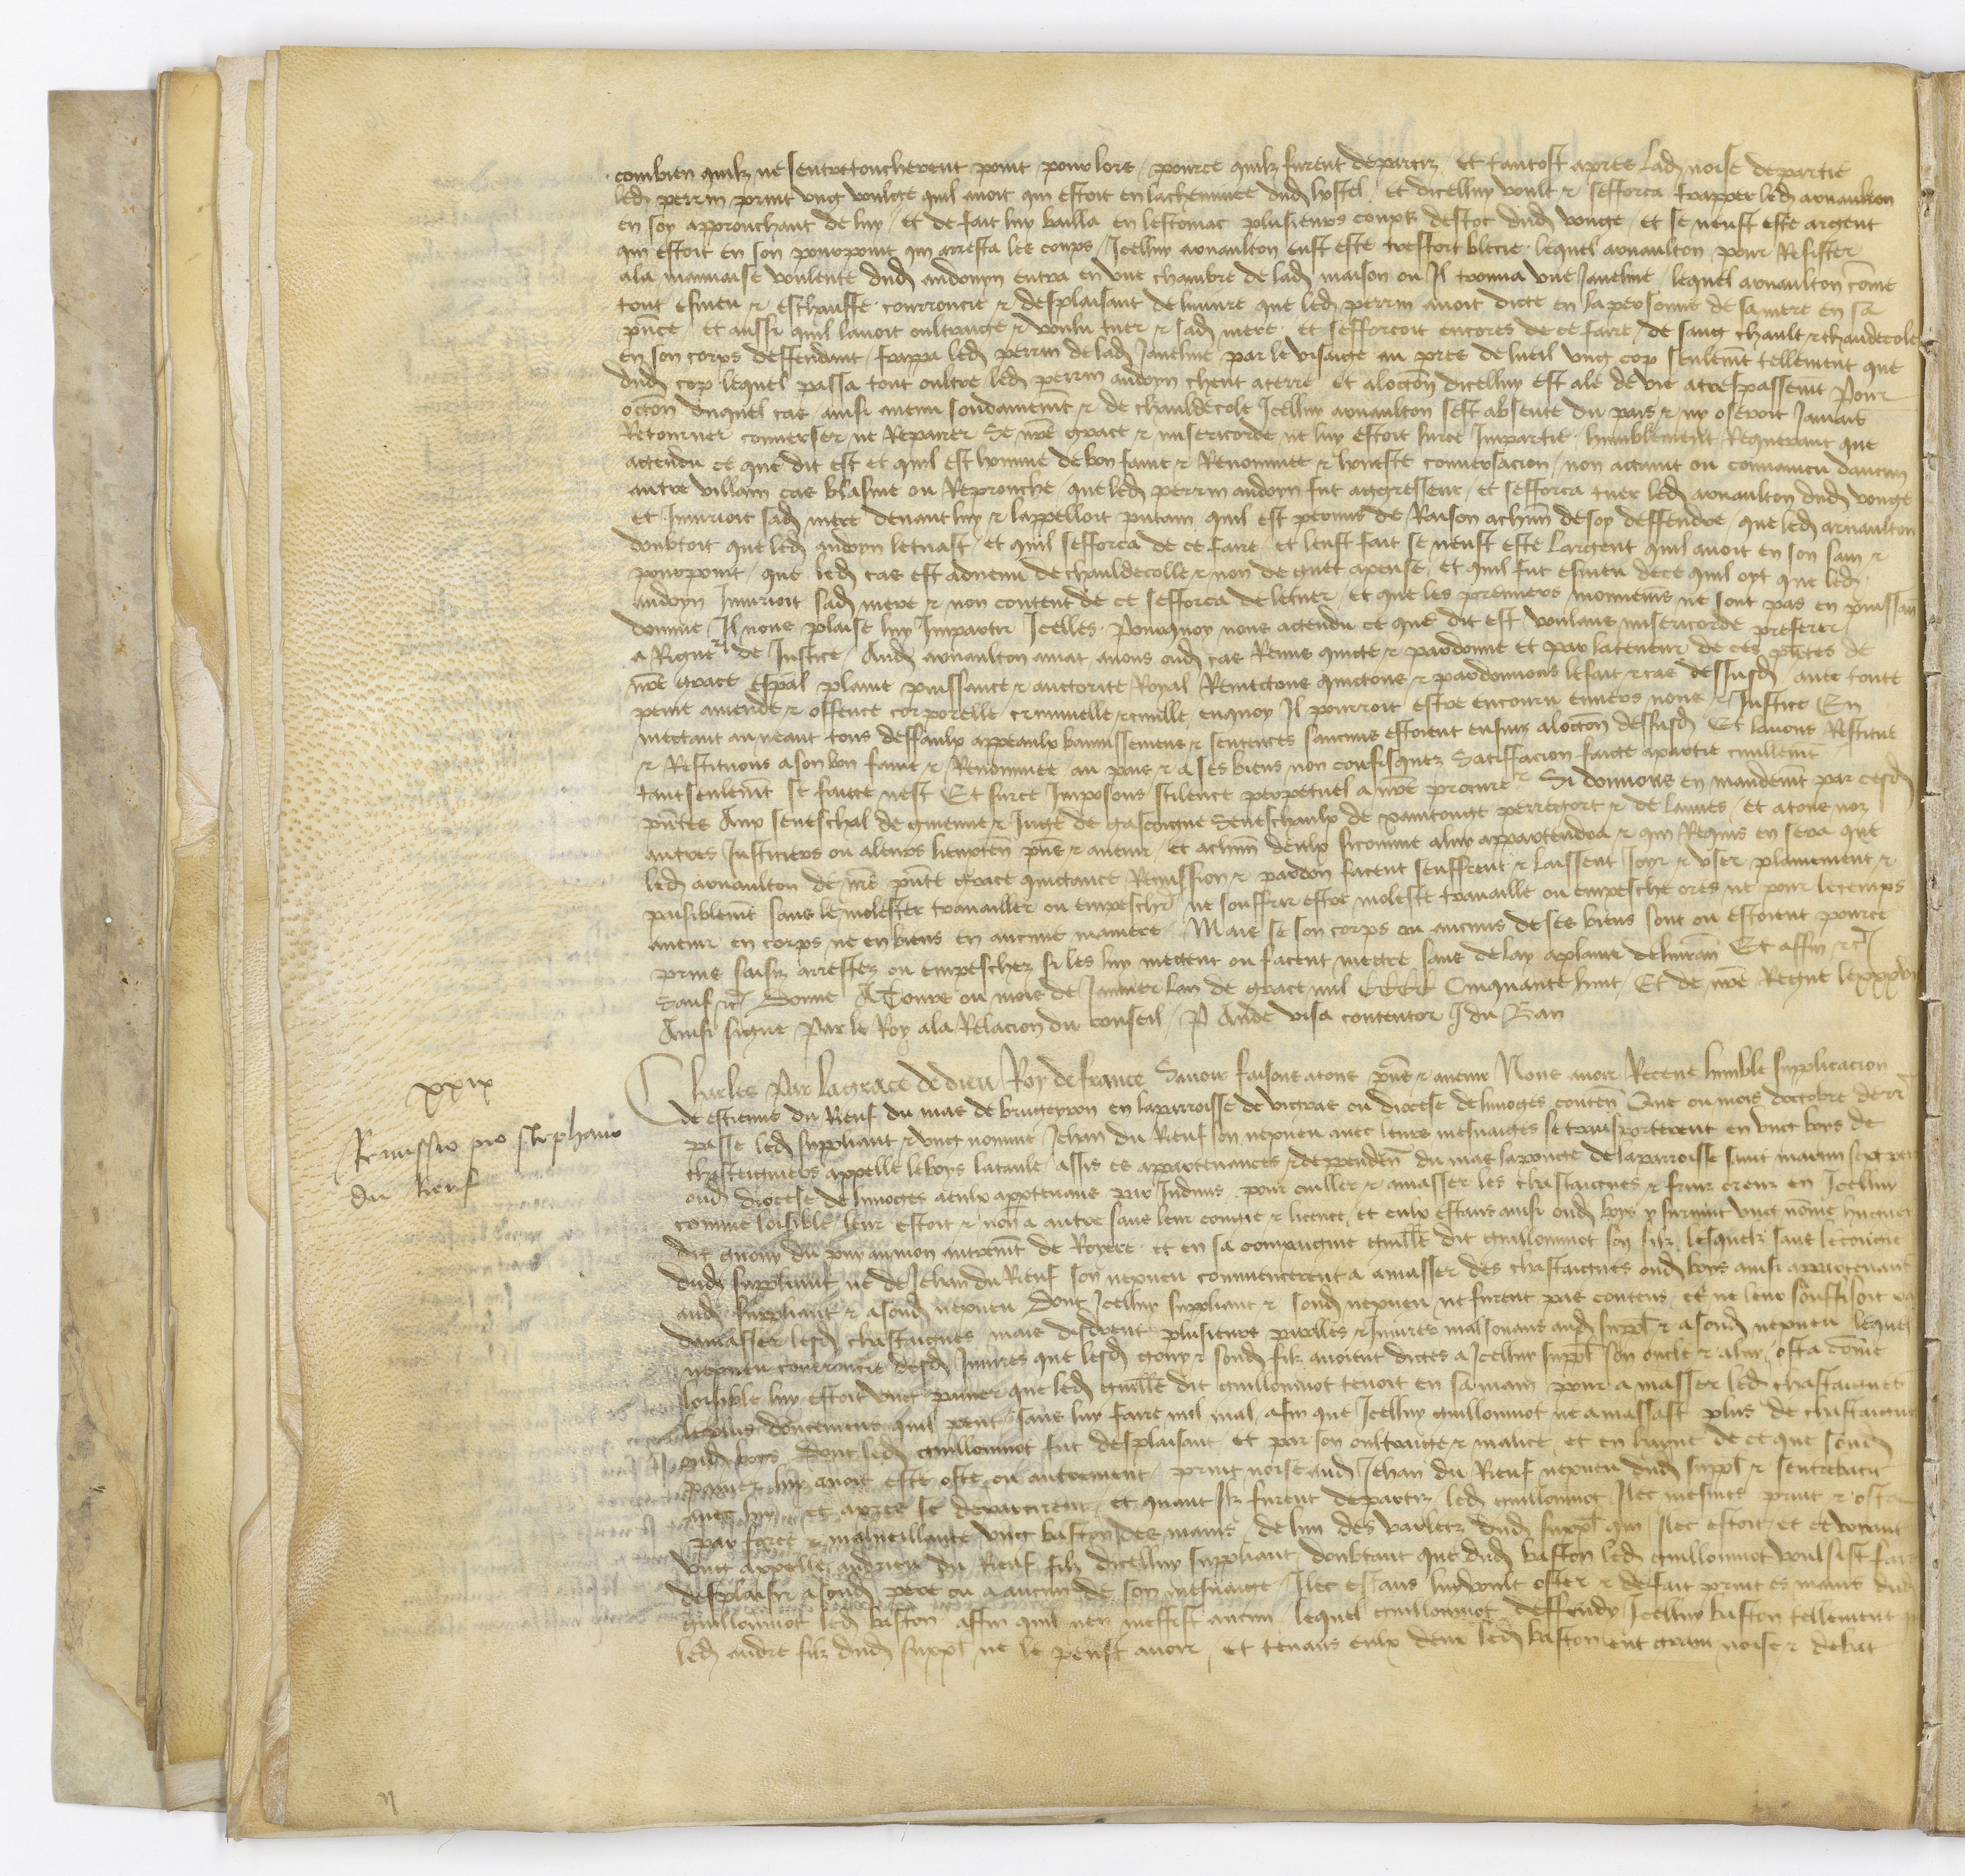 combien quilz ne sentretoucherent point pour lors / pource quilz furent departiz / et tantost apres lad noise departie
led perrin print ung voulge quil avoit qui estoit en lacheminee dud hostel / et dicelluy voult & sefforca frapper led arnaulton
en soy approuchant de luy / et de fait luy bailla en lestomac plusieurs coups destoc dud vouge / et se neust este argent
qui estoit en son pourpoint qui arresta les coups / Icelluy arnaulton eust este tresfort blecie / lequel arnaulton pour Resister
ala mauvaise voulente dud audoyn entra en une chambre de lad maison ou Il trouva une Javeline / lequel arnaulton come
tout esmeu & eschauffe courroucie & desplaisant de linjure que led perrin avoit dicte en lapersonne de sa mere en sa
pnce / et aussi quil lavoit oultrage & voulu tuer & sad mere / et sefforcoit encores de ce faire / de sang chault & chaudecole
en son corps deffendant / frappa led perrin de lad Javeline par le visaige au pres de lueil ung cop seulemt tellement que
dud cop lequel passa tout oultre led perrin audoyn cheut aterre et aloccon dicelluy est ale de vie atrespassemt Pour
occon duquel cas ainsi avenu soudainemt & de chauldecole Icelluy arnaulton sest absente du pais & ny oseroit Jamais
Retourner converser ne Reparer Se nre grace & misericorde ne luy estoit surce Impartie / humblement Requerant que
actendu ce que dit est et quil est homme de bon fame & Renommee & honneste conversacion / non actaint ou convaincu daucun
autre villain cas blasme ou Reprouche / que led perrin audoyn fut aggresseur / et sefforca tuer led arnaulton dud vouge
et Injurioit sad mere devant luy & lappelloit putain / quil est permis de Raison achun de soy deffendre / que led arnaulton
doubtoit que led audoyn letuast / et quil sefforca de ce faire / et leust fait se neust este Largent quil avoit en son sain &
pourpoint / que led cas est advenu de chauldecolle & non de guet apense / et quil fut esmeu dece quil oyt que led
audoyn Injurioit sad mere & non content de ce sefforca de letuer / et que les premiers mouvemens ne sont pas en puissan
domme / Il nous plaise luy Impartir Icelles / Pourquoy nous actendu ce que dit est voulans misericorde preferer
a Rigueur de Justice / Aud arnaulton avons oud cas Remis quicte & pardonne et par lateneur de ces pntes de
nre grace espal plaine puissance & auctorite Royal Remectons quictons & pardonnons lefait & cas dessusd / avec toute
peine amende & offence corporelle criminelle & civille enquoy Il pourroit estre encouru envers nous & Justice En
mectant au neant tous deffaulx appeaulx bannissemens & sentences saucuns estoient ensuiz aloccon dessusd Et lavons Restitue
& Restituons a son bon fame & Renommee au pais & a ses biens non confisquez Satiffacion faicte apartie civilemt
tant seulemt se faicte nest Et surce Imposons scilence perpetuel a nre procur Si donnons en mandemt par cesd
pntes Aux seneschal de guienne & Juge de gascongne Seneschaulx de xantonge perregort & de lannes / et atous noz
autres Justiciers ou aleurs lieuxten pns & avenir / et achun deulx sicomme aluy appartendra & qui Requis en sera que
led arnaulton de nre pnte grace quictance Remission & pardon facent seuffrent & laissent Joyr & user plainement &
paisiblemt sans le molester travailler ou empescher ne souffrir estre moleste travaille ou empesche ores ne pour letemps
avenir en corps ne en biens en aucune maniere / Mais se son corps ou aucuns de ses biens sont ou estoient pource
prins saisiz arrestez ou empeschez si les luy mectent ou facent mectre sans delay aplaine delivran Et affin &c
Sauf &c Donne A Tours ou mois de Janvier Lan de grace mil CCCC Cinquante huit / Et de nre Regne le xxxvii
Ainsi signe Par le Roy ala Relacion du conseil / Visa contentor du Ban
xxix
Remissio pro stephano
du Rieuf
Charles Par lagrace de dieu Roy de france Savoir faisons atous pns & avenir Nous avoir Receue lumble supplicacion
de estienne du Rieuf du mas de brugeyron en laparroisse de ou diocese delimoges conten Que ou mois doctobre derr
passe led suppliant & ung nomme Jehan du Rieuf son nepveu avec leurs mesnaiges se transporterent en ung boys de
chasteigniers appelle leboys lataule / assis es appartenances & deppenden du mas delaparroisse saint martin
oud diocese de limoges aeulx appartenans par Indivis pour cuillir & amasser les chastaignes & fruiz creuz en Icelluy
comme loisible leur estoit & non a autre sans leur congie & licence / et eulx estans ainsi oud boys y survint ung nome huguet
dit gnony du puy aumon autremt de Royere / et en sa compaignie guille dit guillonnot son filz / lesquelz sans lecongie
dud suppliant ne de Jehan du Rieuf son nepveu commencerent a amasser des chastaignes oud boys ainsi appartenant
aud suppliant & asond nepveu Dont Icelluy suppliant & sond nepveu ne furent pas contens / et ne leur souffisoit pas
damasser lesd chastaignes mais disdrent plusieurs parolles & Injures malsonans aud suppl & asond nepveu lequel
nepveu courroucie desd Injures que lesd gnony & sond filz avoient dictes a Icelluy suppl son oncle & aluy / osta come
loisible luy estoit ung panier que led guille dit guillonnot tenoit en samain pour amasser led chastaignes
leplus doucement quil peut sans luy faire nul mal / afin que Icelluy guillonnot ne amassast plus de chastaignes
oud boys / Dont led guillonnot fut desplaisant / et par son oultraige & malice et en hayne de ce que sond
panier luy avoit este oste ou autrement / print noise aud Jehan du Rieuf nepveu dud suppl & sentrebatit
avec luy / et apres se departirent / et quant Ilz furent departiz led guillonnot Ilec mesmes print & osta
par force & malveillance ung baston des mains de lun des varletz dud suppl qui Ilec estoit / et ce voiant
ung appelle andrieu du Rieuf filz dicelluy suppliant / doubtant que dud baston led guillonnot voulsist faire
desplaisir asond pere ou a aucun de son mesnaige Ilec estans luy voult oster & defait print es mains dud
guillonnot led baston affin quil nen meffist aucun / lequel guillonnot deffendy Icelluy baston tellement
led andre filz dud suppl ne le peust avoir / et tenans eulx deux led baston ent grant noise & debat